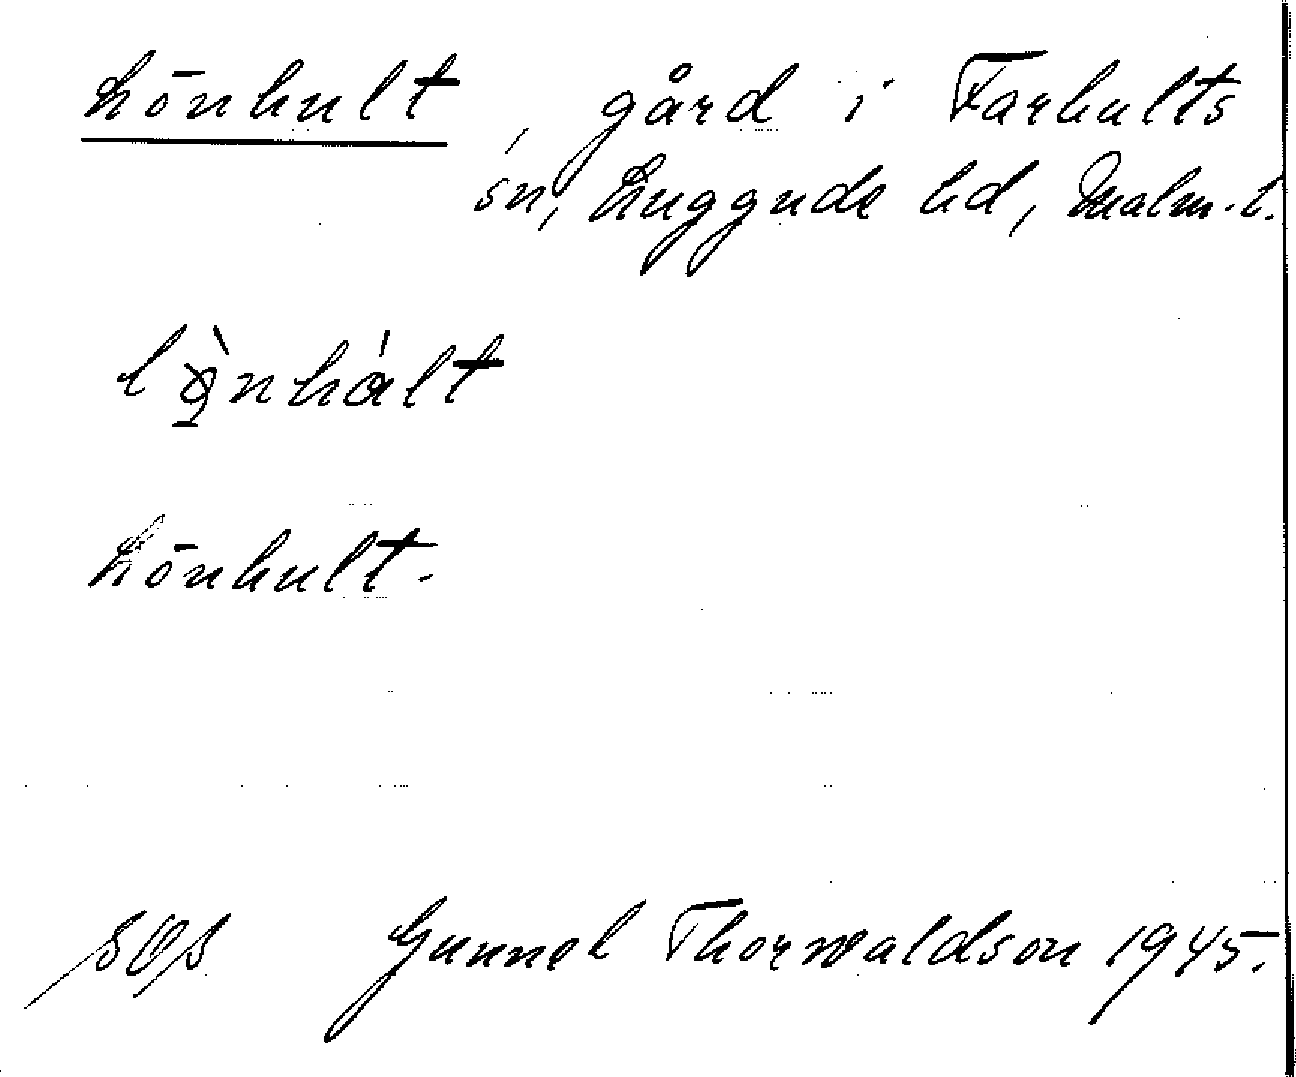 Lönhult, gård i Farhults
sn, Luggude hd, Malm. l.
lö̀nhált
Lönhult.
Gunnel Thorwaldson 1945.